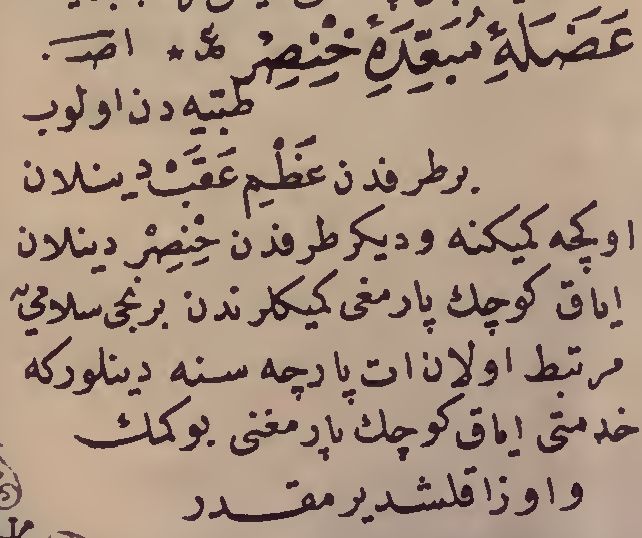 عَضَلَۀِ مُبَعِّدَۀِ خِنْصِرْ * اصــ .
طبّیه دن اولوب
بر طرفدن عَظْمِ عَقَبْ دینلان
اوکچه کمیکنه ودیکر طرفدن خِنْصِرْ دینلان
ایاق کوچك پارمغی کمیکلرندن برنجی سلامییه
مرتبط اولان ات پارچه سنه دینلورکه
خدمتی ایاق کوچك پارمغنی بوکمك
واوزاقلشدیرمقدر